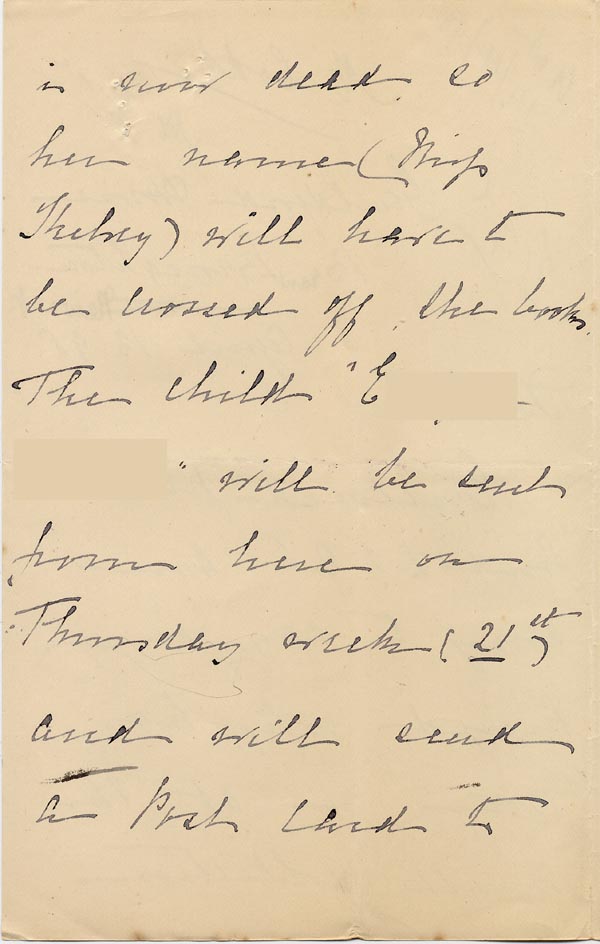 is now dead so
her name (Miss
Skelsey) will have to
be crossed off the books.
The child "E
" will be sent
from here on
Thursday week (21st)
and will send
a Post card to